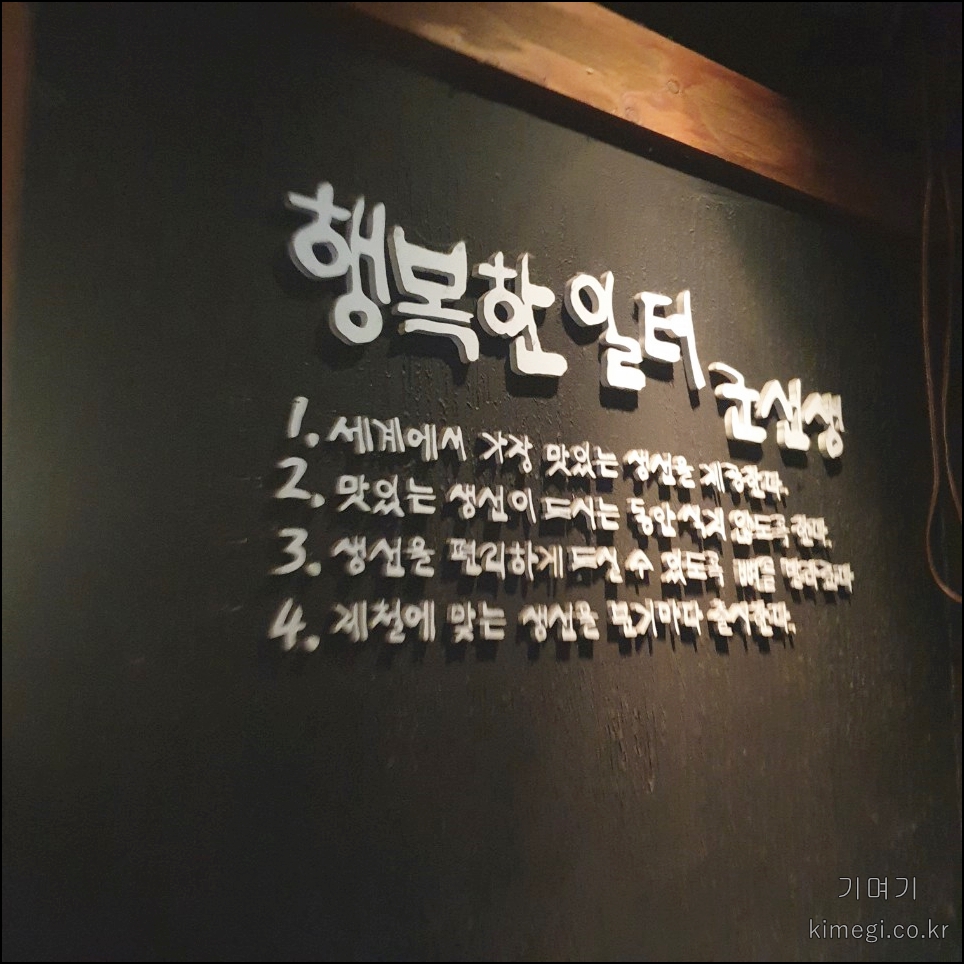 행복한 일터 군선생
1. 세계에서 가장 맛있는 생선을 제공한다.
2. 맛있는 생선이 드시는 동안 식지 않도록 한다.
3. 생선을 편리하게 드실 수 있도록 뼈를 발라준다
4. 제철에 맞는 생선을 분기마다 출시한다.
기며기
kimegi.co.kr